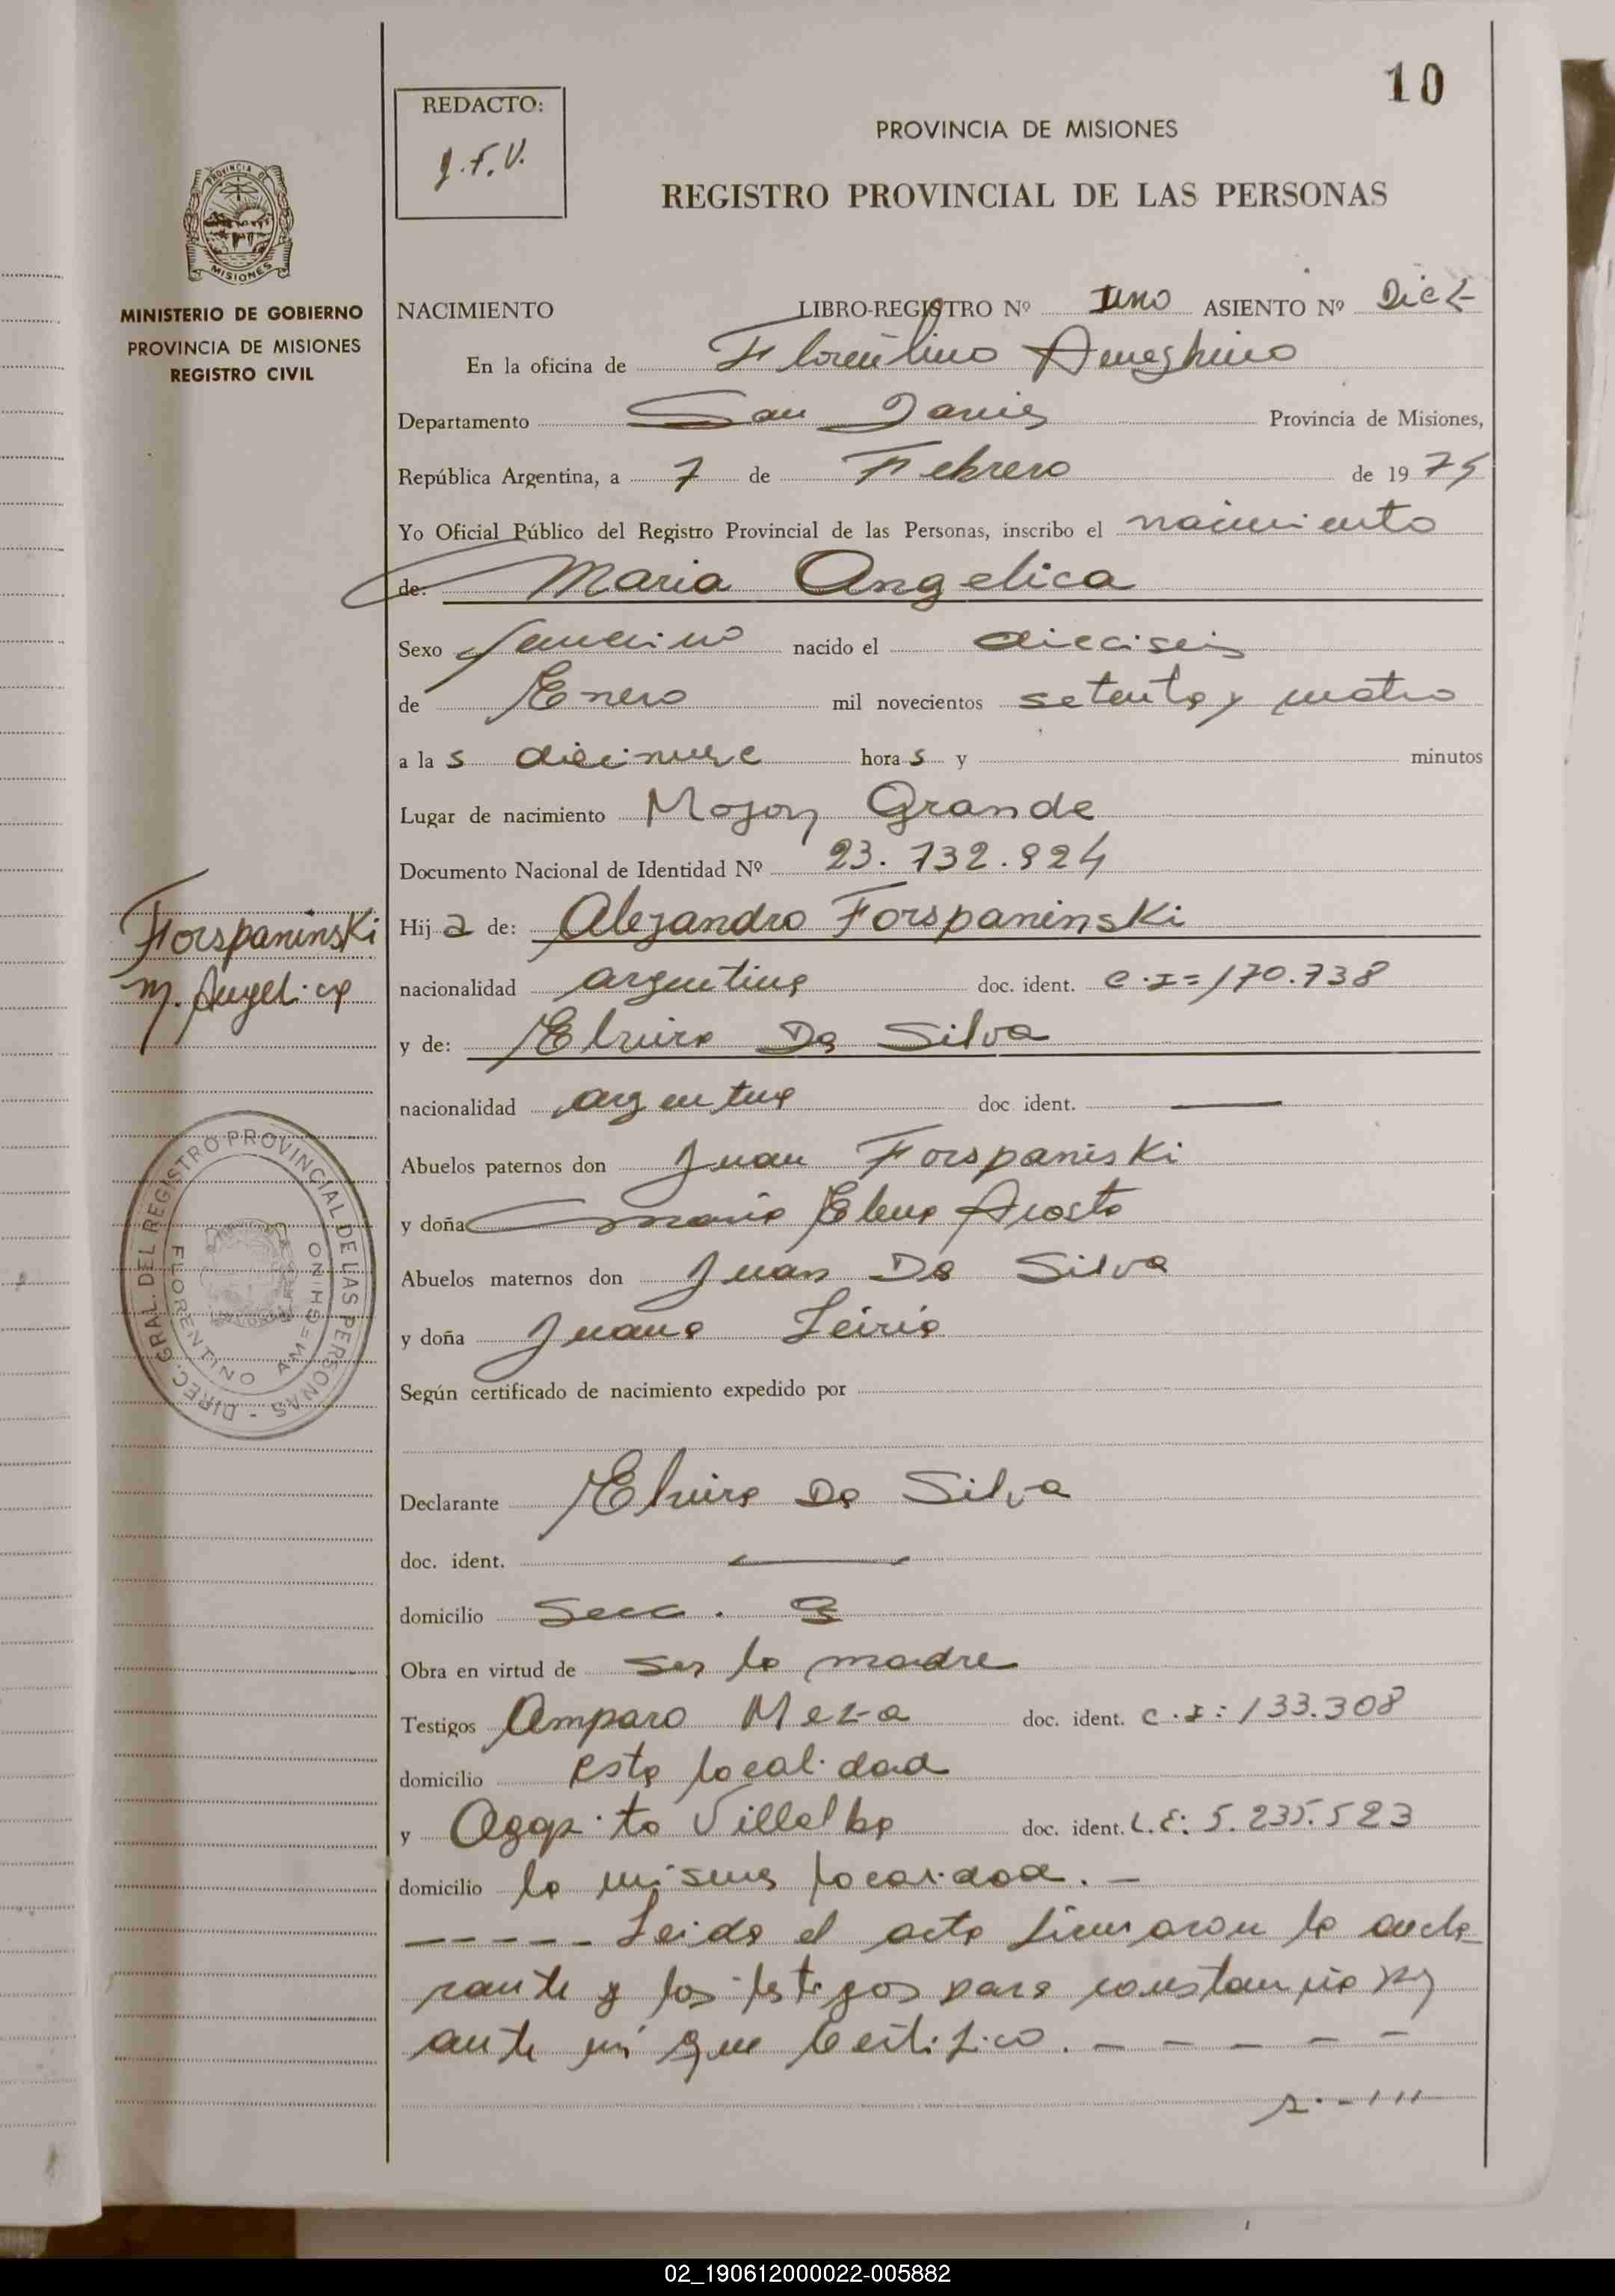 10
REDACTO:
J.F.V.
PROVINCIA DE MISIONES
REGISTRO PROVINCIAL DE LAS PERSONAS
MISIONES
MINISTERIO DE GOBIERNO
PROVINCIA DE MISIONES
REGISTRO CIVIL
NACIMIENTO LIBRO-REGISTRO Nº uno ASIENTO Nº Diez
En la oficina de Florentino Ameghino
Departamento San Javier Provincia de Misiones,
República Argentina, a 7 de Febrero de 1975
Yo Oficial Público del Registro Provincial de las Personas, inscribo el nacimiento
de: Maria Angelica
Sexo femenino nacido el dieciseis
de Enero mil novecientos setenta y cuatro
a las diecinueve horas y minutos
Lugar de nacimiento Mojon Grande
Documento Nacional de Identidad Nº 23.732.924
Forspaninski
M. Angelica
Hija de: Alejandro Forspaninski
nacionalidad argentina doc. ident. C.I= 170.738
y de: Elvira Da Silva
nacionalidad argentina doc. ident. —
Abuelos paternos don Juan Forspaniski
y doña Maria Elena Acosta
Abuelos maternos don Juan Da Silva
y doña Juana Leiria
DIREC. GRAL. DEL REGISTRO PROVINCIAL DE LAS PERSONAS -
FLORENTINO AMEGHINO
Según certificado de nacimiento expedido por
Declarante Elvira Da Silva
doc. ident. —
domicilio Secc. 3
Obra en virtud de ser la madre
Testigos Amparo Meza doc. ident. C.I: 133.308
domicilio esta localidad
y Agapito Villalba doc. ident. L.E: 5.235.523
domicilio la misma localidad. —
— — — — — Leida el acta firmaron la decla-
rante y los testigos para constancia
ante mi que Certifico. — — — — —
02_190612000022-005882